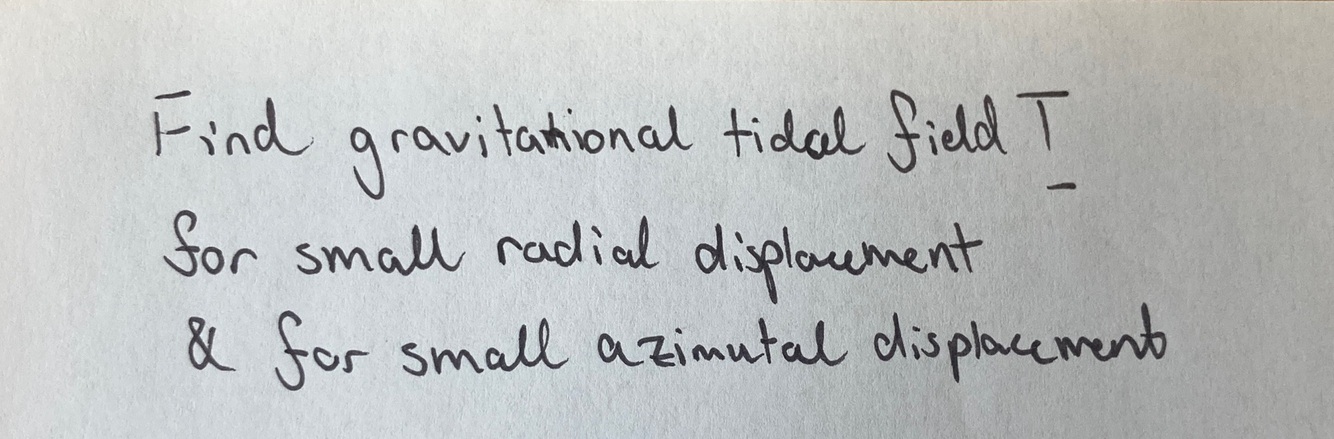 Find gravitational tidal field T
for small radial displacement
& for small azimutal displacement